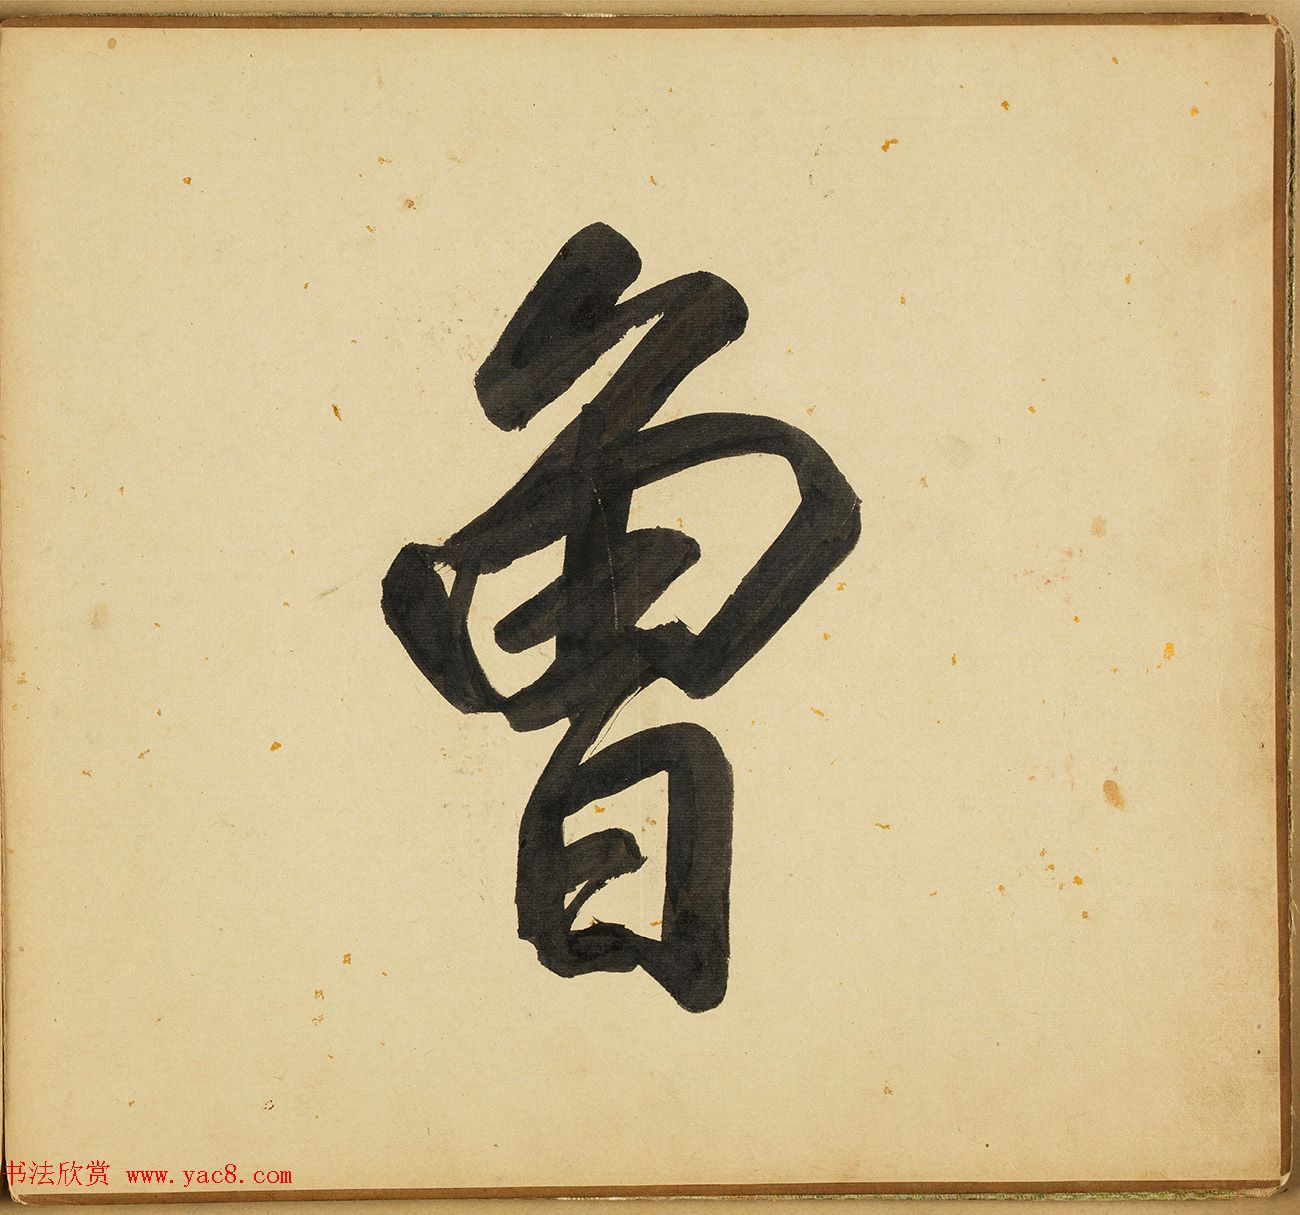 曾
书法欣赏 www.yac8.com